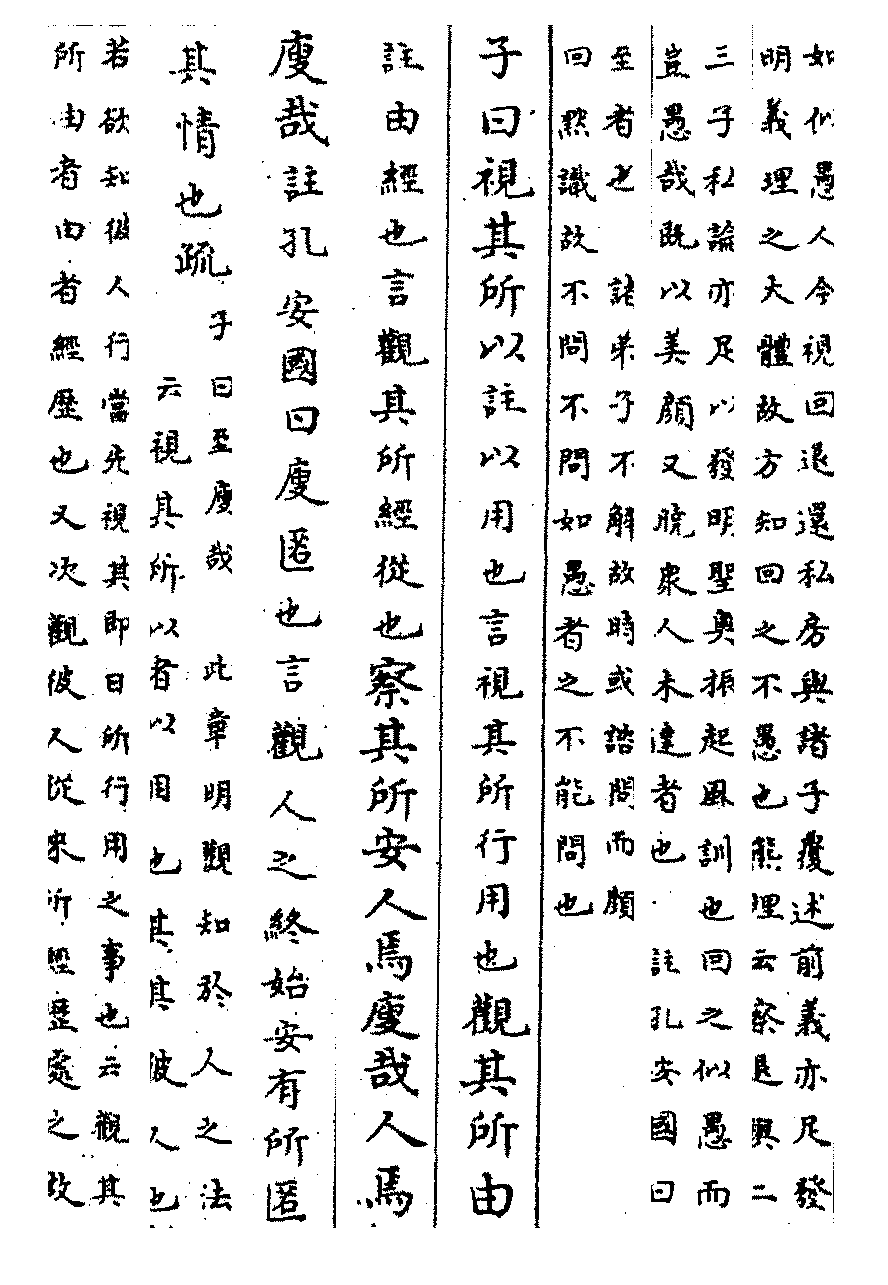 如似愚人今視回退還私房與諸子覆述前義亦足發
明義理之大體故方知回之不愚也熊理云察退與二
三子私論亦足以發明聖奧振起風訓也回之似愚而
豈愚哉既以美顔又曉衆人未達者也 註孔安國曰
至者也 諸弟子不解故時或諮問而顔
回黙識故不問不問如愚者之不能問也
子曰視其所以註以用也言視其所行用也觀其所由
註由經也言觀其所經從也察其所安人焉廋哉人焉
廋哉註孔安國曰廋匿也言觀人之終始安有所匿
其情也疏
子曰至廋哉 此章明觀知於人之法
云視其所以者以用也其其彼人也
若欲知彼人行當先視其即日所行用之事也云觀其
所由者由者經歴也又次觀彼人從來所經歴處之故